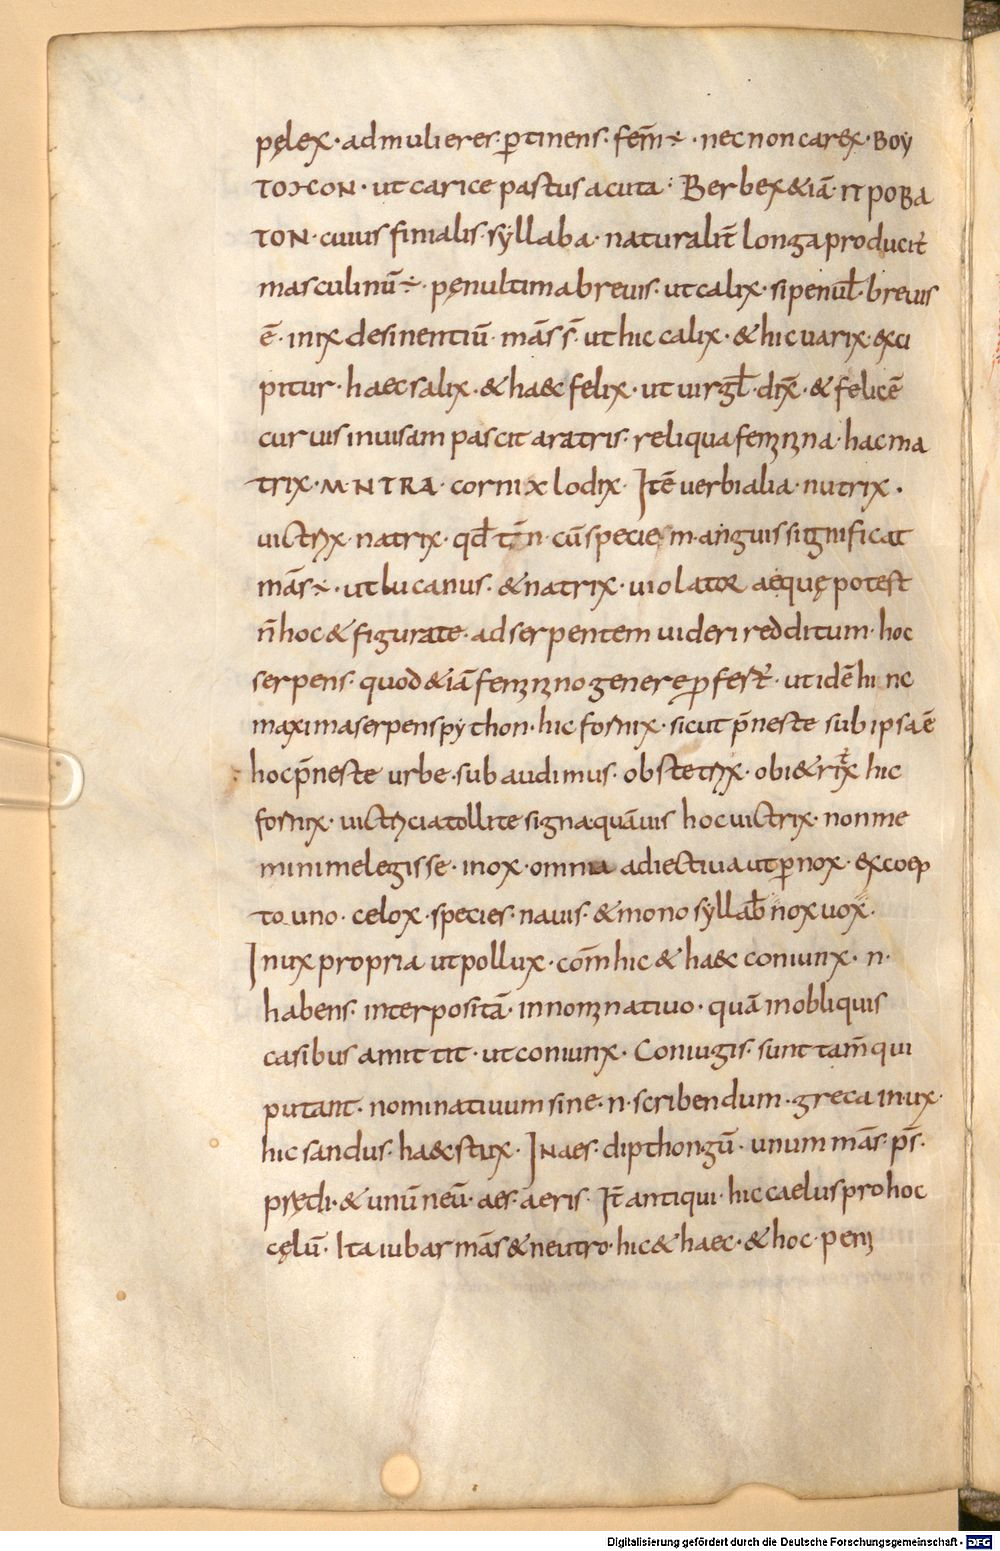 pęlex · ad mulieres · ꝑtinens · fem̄ ÷ · nec non carex · BOY
TOↃCON · ut carice pastus acuta · Berbex & iā · ΠΡOBA
TON · cuius finialis · syllaba · naturalit̄ longa producit̄
masculinū ÷ · pęnultima breuis · ut calix · si penul̄ · breuis
ē · in ix desinentiū · mās s̄ · ut hic calix · & hic uarix · exci
pitur · haec salix · & haec felix · ut uirgl̄ · dix̄ · & felicē
curuis inuisam pascit aratris · reliqua feminina · hac ma
trix · MNTRA · cornix lodix · Itē uerbialia · nutrix ·
uictrix · natrix · qd̄ tm̄ n · cū speciem · anguis significat
mās ÷ · ut lucanus · & natrix · uiolator aequę potest
n̄ hoc & figurate · ad serpentem uideri redditum · hoc
serpens · quod & iā feminino genere ꝑfert̄ · ut idē hi nc
maxima serpens python · hic fornix · sicut p̄neste sub ipsa ē
hoc p̄neste urbe · subaudimus · obstetrix · obi & rix hic
fornix · uictricia tollite signa · quāuis hoc uictrix · non me
minime legisse · in ox · omnia adiectiua ut ꝑnox · excoep
to uno · celox · species · nauis · & monosyllab̄ nox uox ·
In ux propria ut pollux · com̄ hic & haec coniunx · n ·
habens · interpositā · in nominatiuo · quā in obliquis
casibus amittit · ut coniunx · Coniugis · sunt tam̄ qui
putant · nominatiuum sine · n · scribendum · greca in · ux ·
hic sandus · haec stux · IN aes · dipthongū · unum mās · p̄s ·
prędi · & unū neū · aes · aeris · It̄ antiqui · hic caelus pro hoc
cęlū · Ita iubar mās & neutro · hic & haec · & hoc · peni
Digitalisierung gefördert durch die Deutsche Forschungsgemeinschaft - DFG